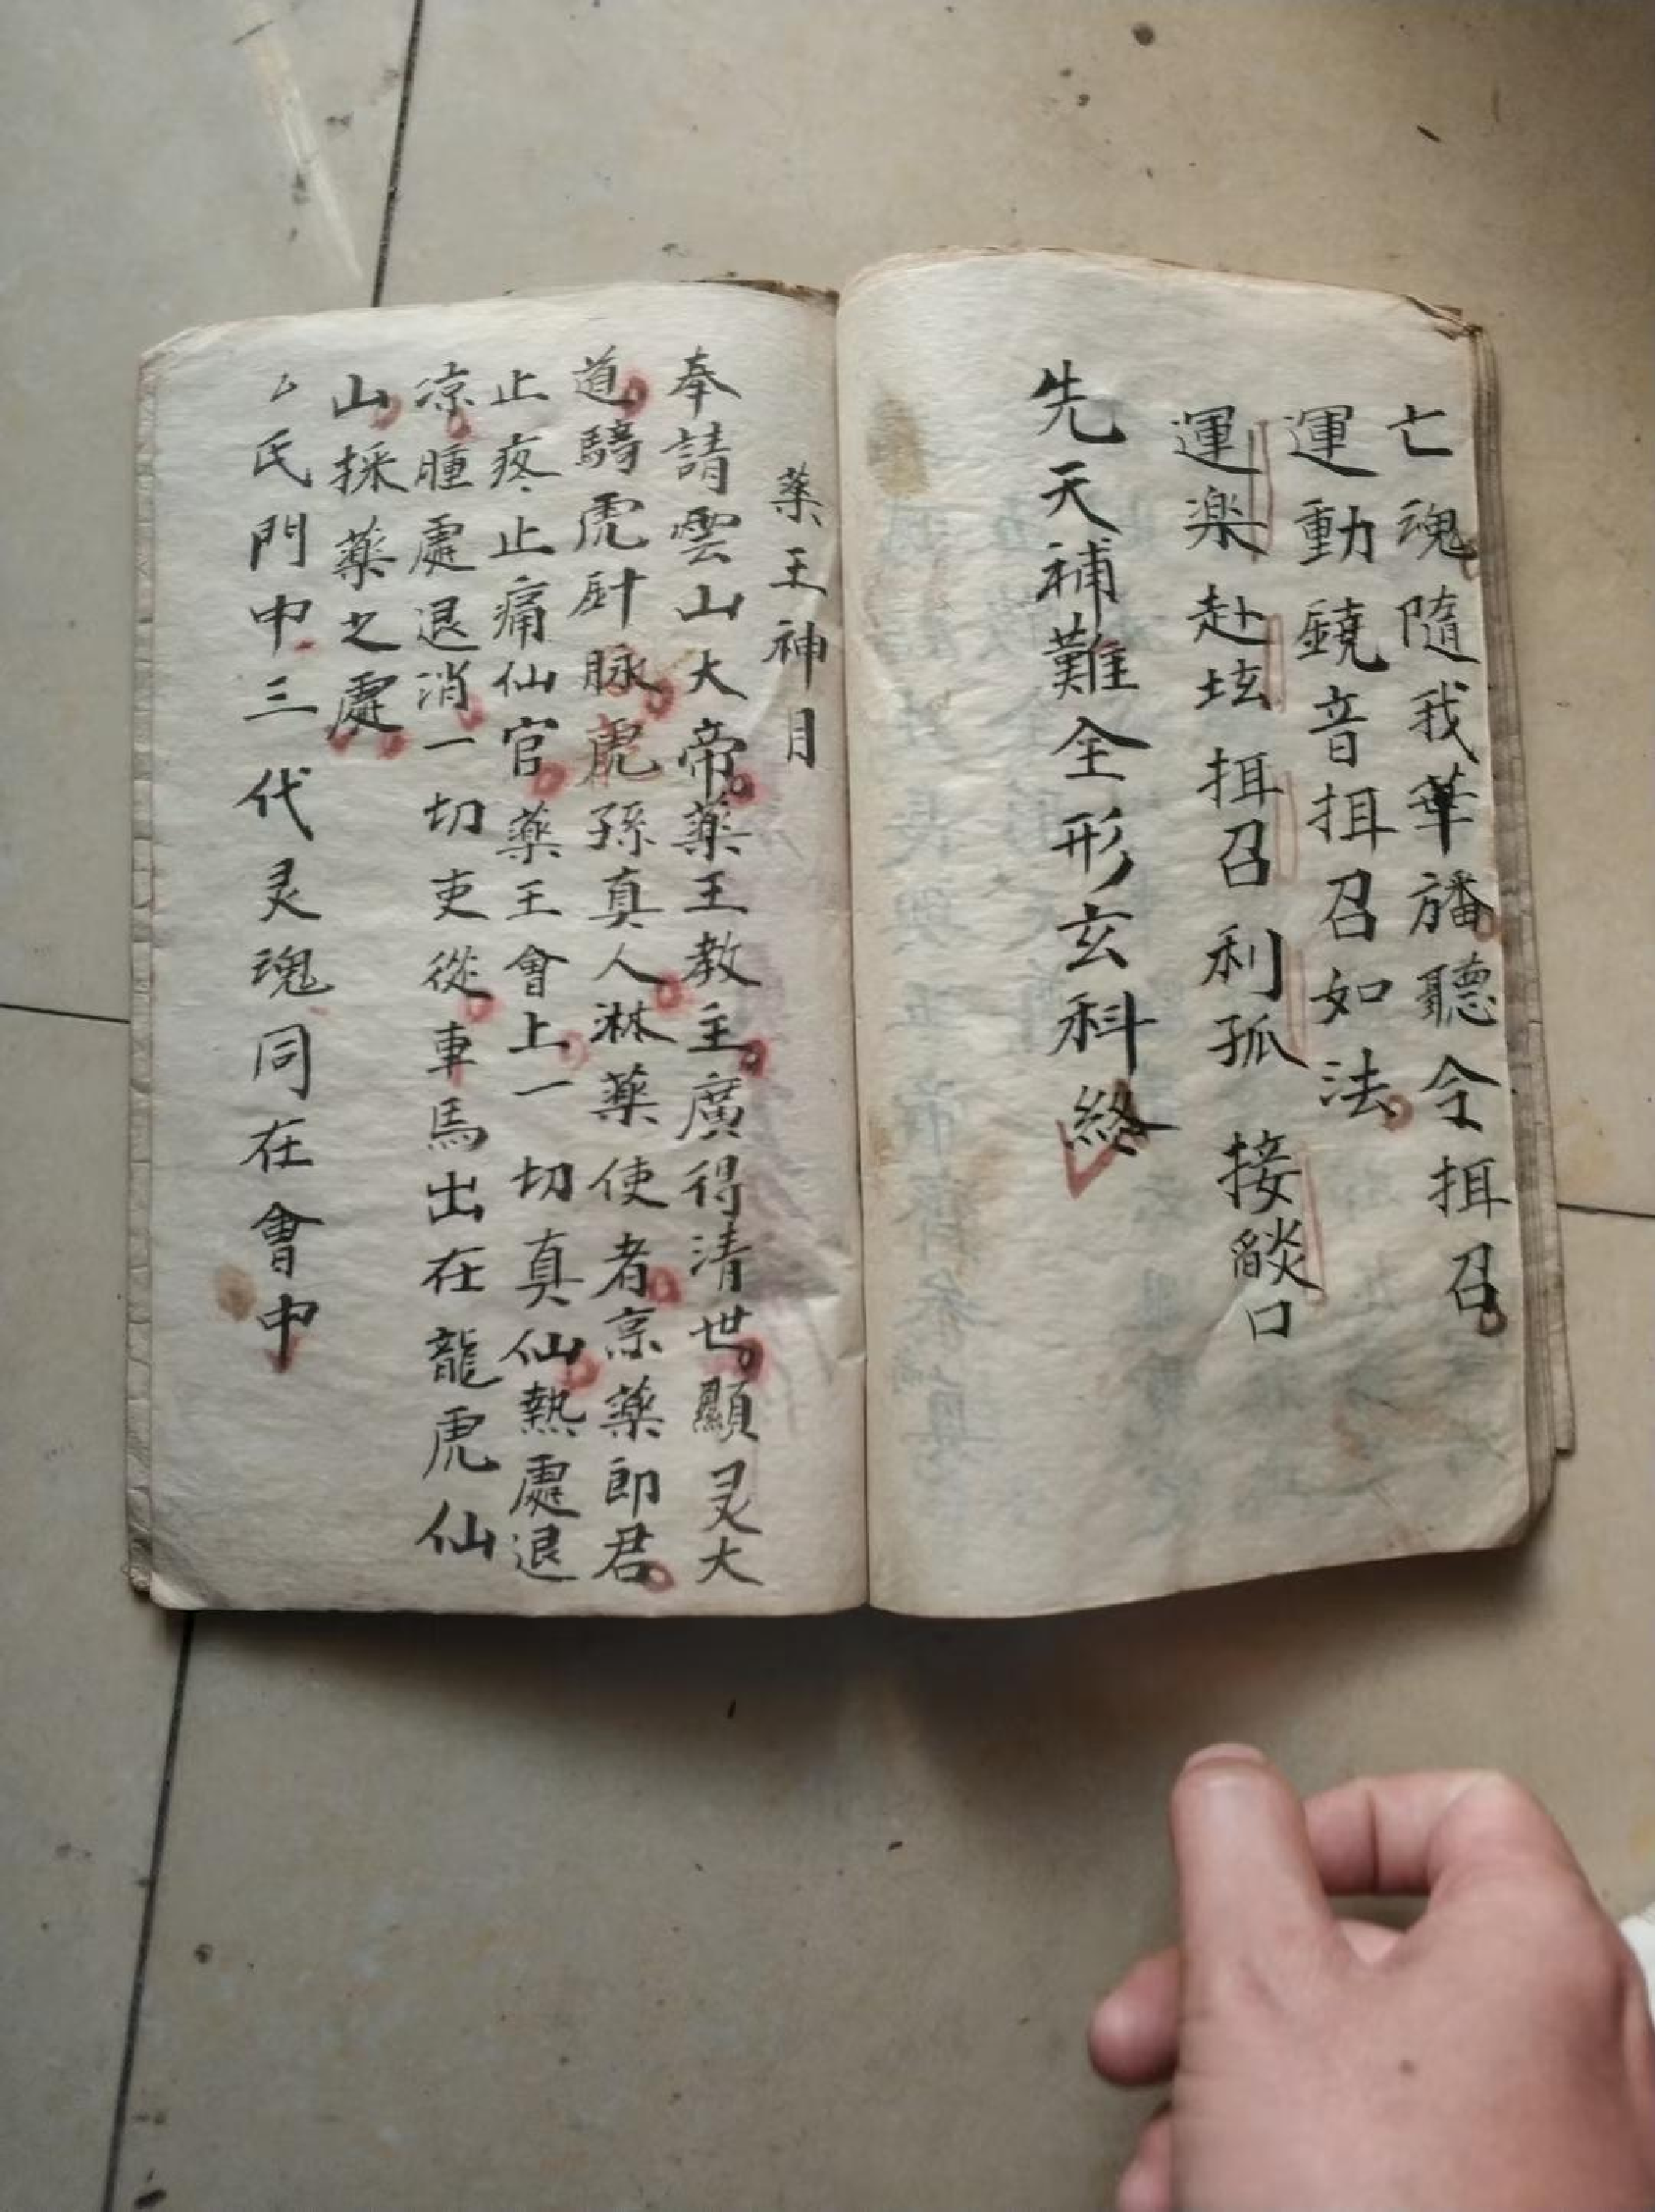 亡魂隨我華旛聽令抯召
運動鐃音抯召如法
運楽赴坛抯召利孤 接餤口
先天補難全形玄科終
薬王神目
奉請雲山大帝薬王教主廣得清世顯灵大
道騎虎針脉虎孫真人淋薬使者京薬郎君
止疼止痛仙官薬王會上一切真仙熱處退
凉腫處退消一切吏從車馬出在龍虎仙
山採薬之處
厶氏門中三代灵魂同在會中